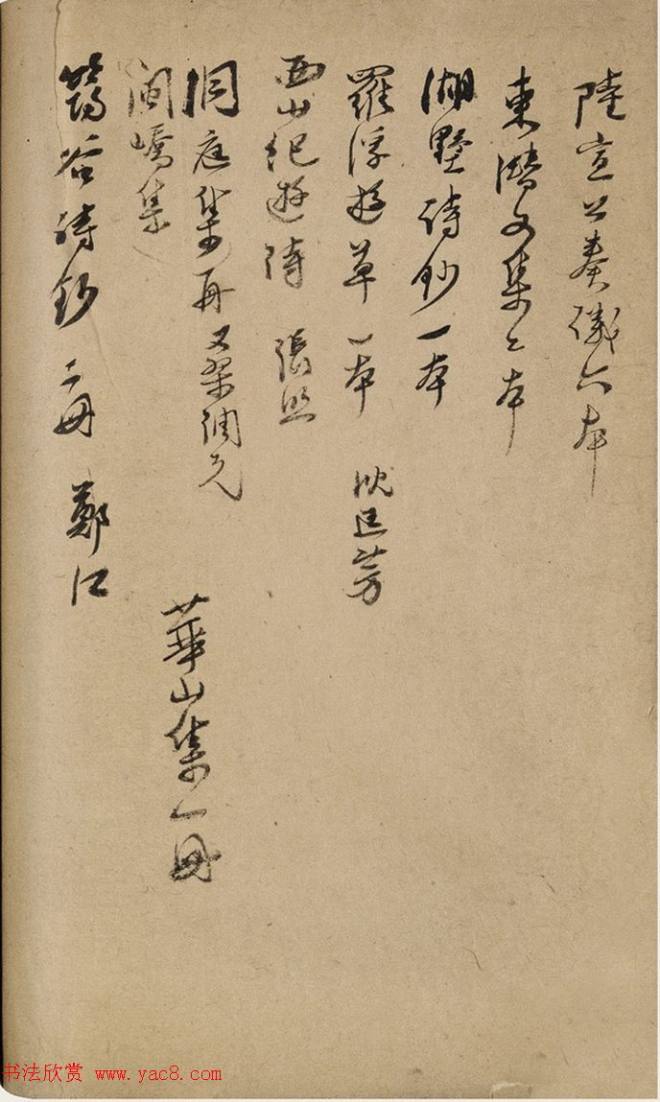 陸宣公奏議六本
東潛文集二本
湖墅詩鈔一本
羅浮遊草一本 沈廷芳
西山紀遊詩 張照
洞庭集一冊 又 桑調元
閩嶠集
華山集一冊
篛谷詩鈔二冊 鄭江
书法欣赏 www.yac8.com